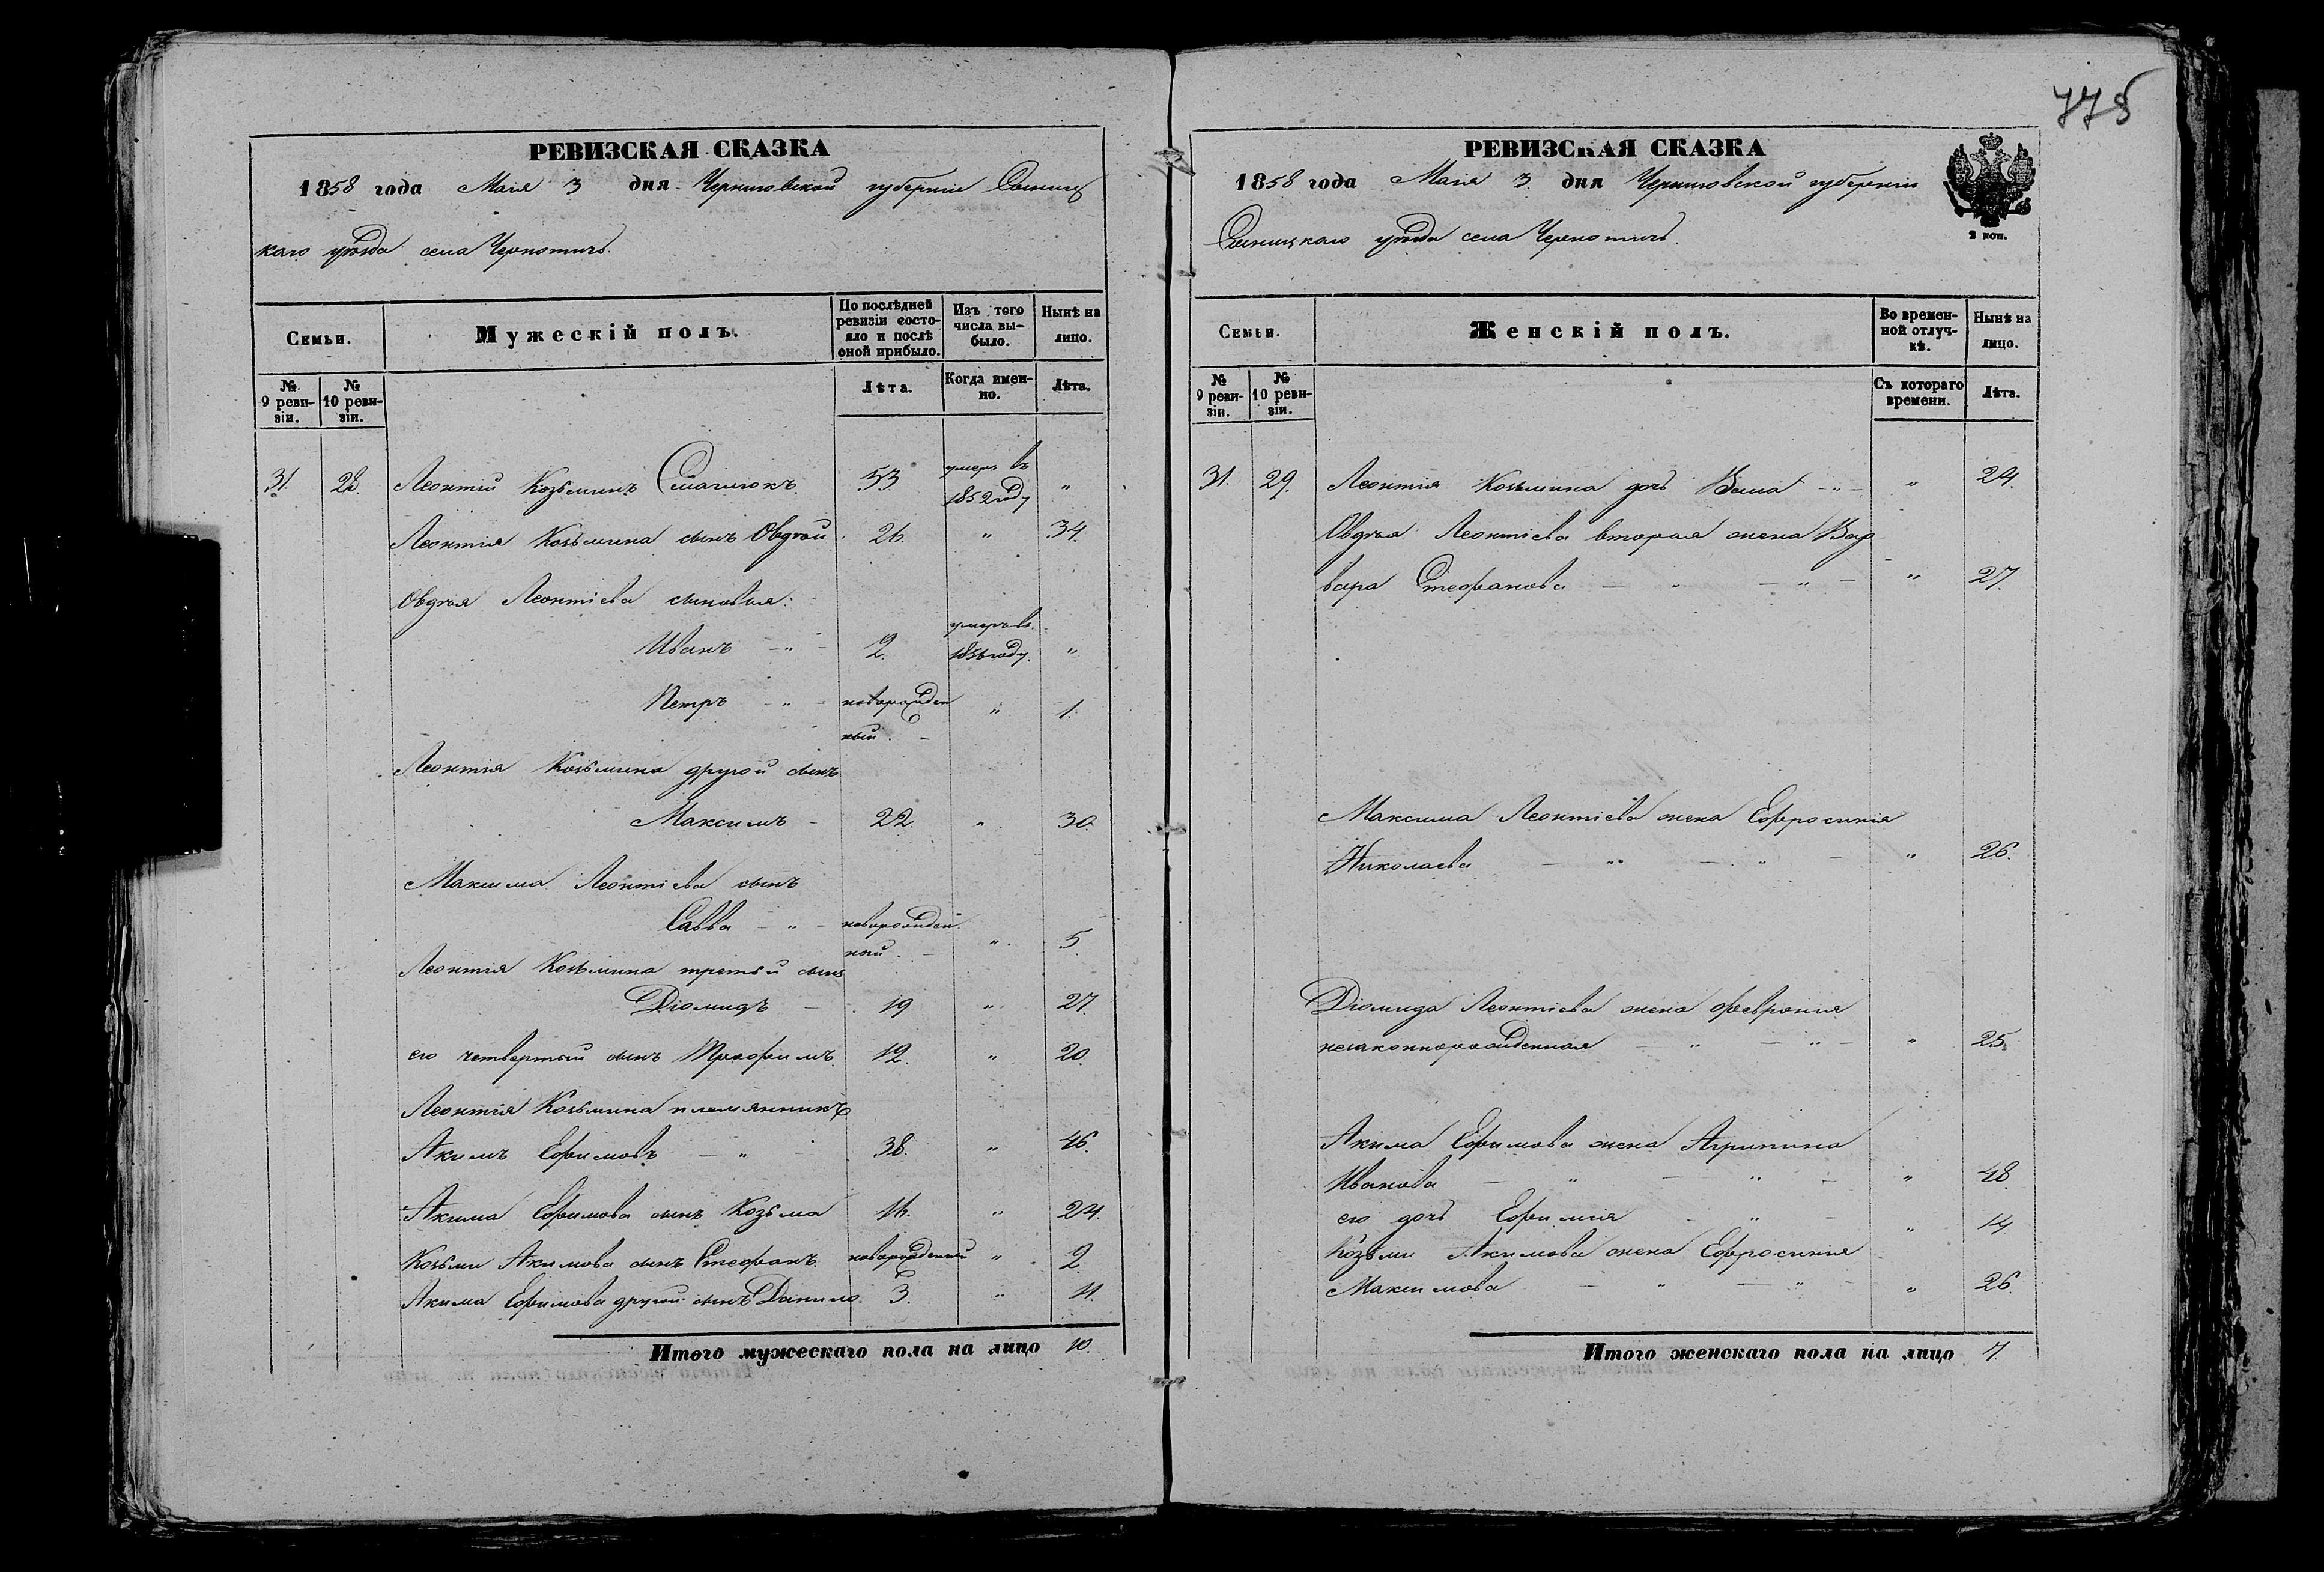 775
РЕВИЗСКАЯ СКАЗКА
1858 года Маія 3 дня Черниговской губерніи Сосниц
каго уѣзда села Чернотичъ.
Семьи.
Мужескій полъ.
По послѣдней ревизіи состо-
яло и послѣ оной прибыло.
Изъ того числа вы-
было.
Нынѣ на лицо.
№ 9 реви-
зіи.
№ 10 реви-
зіи.
Лѣта.
Когда имен-
но.
Лѣта.
31. 28. Леонтій Козьминъ 53 умеръ въ 1852 году "
Леонтія Козьмина сынъ Овдѣй 26. " 34.
Овдѣя Леонтіева сыновья:
Иванъ - " - 2. умеръ въ 1856 году. "
Петръ " - новорожден
ный. - " 1.
Леонтія Козьмина другой сынъ
Максимъ - 22. " 30.
Максима Леонтіева сынъ
Савва - " - новорожден
ный. - " 5.
Леонтія Козьмина третьй сынъ
Діомидъ - 19 " 27.
его четвертый сынъ Трофимъ. 12. " 20.
Леонтія Козьмина племянникъ
Акимъ Ефимовъ - " - 38. " 46.
Акима Ефимова сынъ Козьма 16. " 24.
Козьми Акимова сынъ Стефанъ новорожденный " 2.
Акима Ефимова другой сынъ Данило 3. " 11.
Итого мужескаго пола на лицо 10.
РЕВИЗСКАЯ СКАЗКА
1858 года Маія 3. дня Черниговской губерніи
2 коп.
Сосницкаго уѣзда села Чернотичъ.
Семьи.
Женскій полъ.
Во времен-
ной отлуч-
кѣ.
Нынѣ на лицо.
№ 9 реви-
зіи.
№ 10 реви-
зіи.
Съ котораго времени.
Лѣта.
31. 29. Леонтія Козьмина дочь - " - " 24.
Овдѣя Леонтіева вторая жена Вар
вара Стефанова - " - " - " 27.
Максима Леонтіева жена Ефросинія
Николаева - " - " - " 26.
Діомида Леонтіева жена Февронія
незаконнорожденная - " - " - " 25.
Акима Ефимова жена Агрипина
Иванова - " - " - " 48.
его дочь Ефимія - " - " 14.
Козьми Акимова жена Ефросинія
Максимова - " - " - " 26.
Итого женскаго пола на лицо 7.